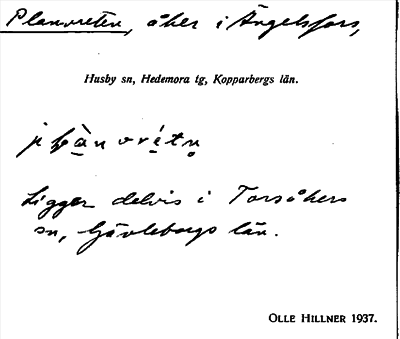 Planvreten, åker i Ängelsfors,
Husby sn, Hedemora tg, Kopparbergs län.
Ligger delvis i Torsåkers
sn, Gävleborgs län.
OLLE HILLNER 1937.